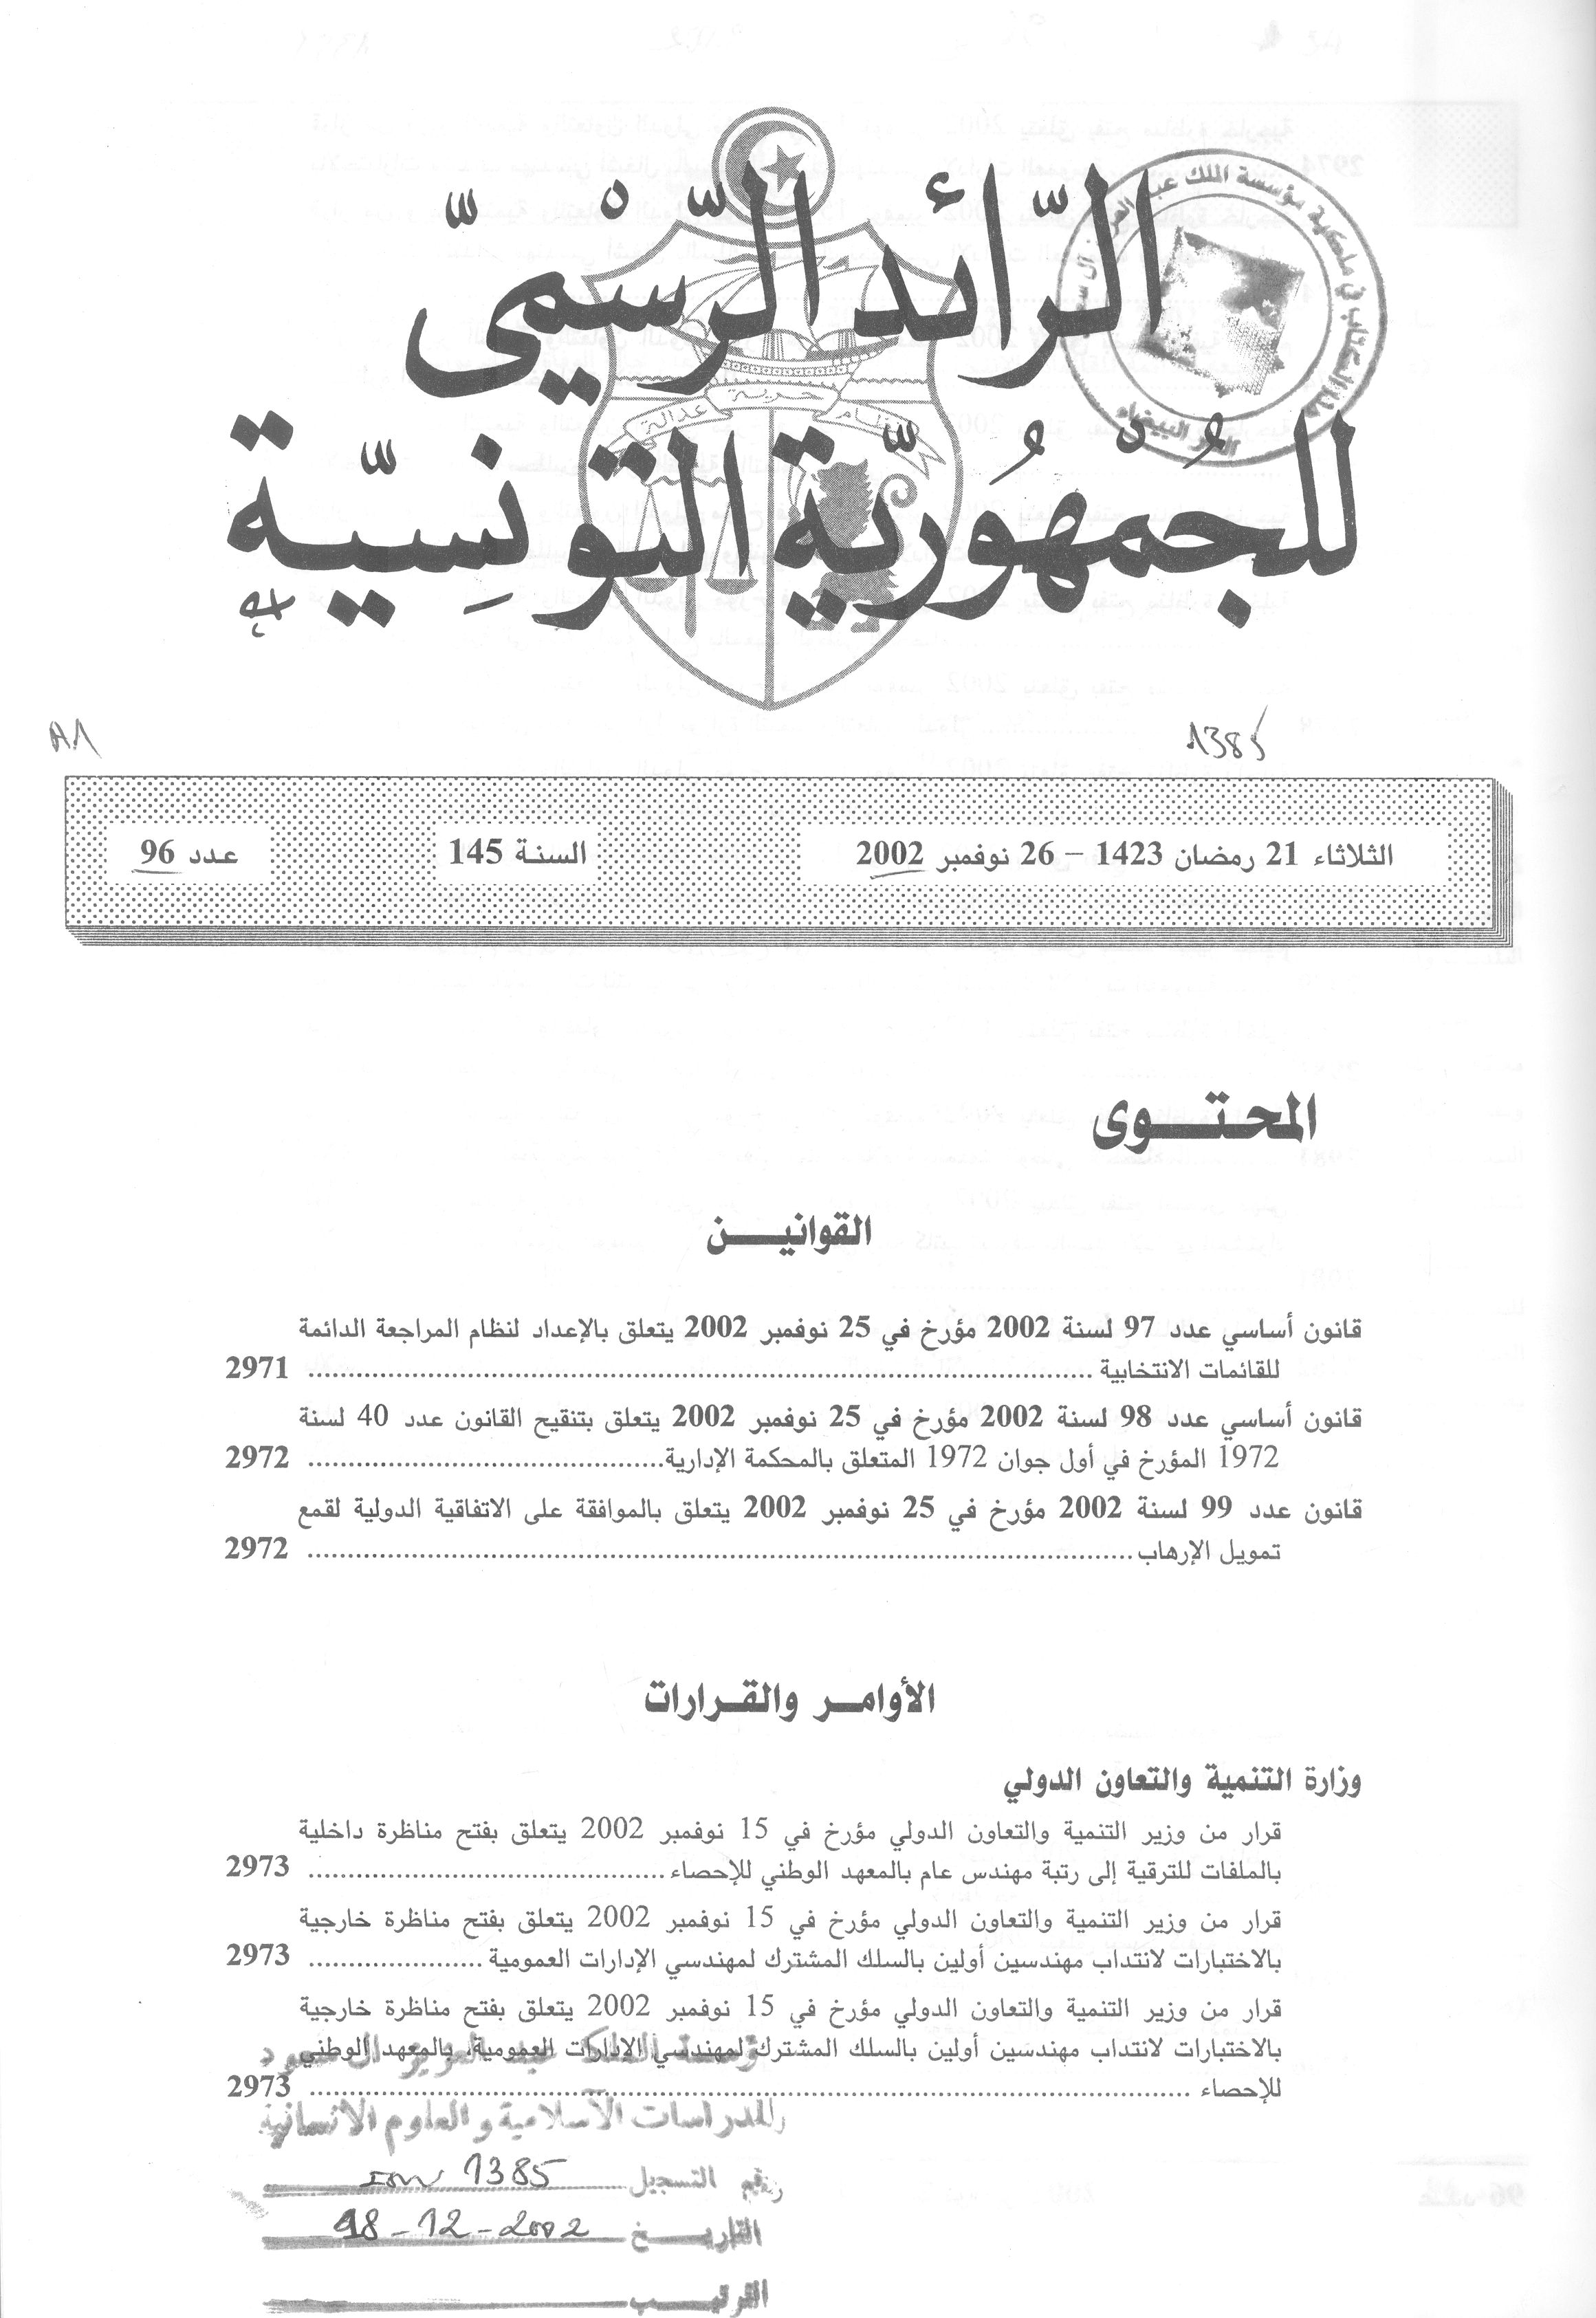 الرّائد الرّسميّ
للجُمْهُوريّة التّونِسيّة
نظام حرية عدالة
A1
1385
الثلاثاء 21 رمضان 1423 – 26 نوفمبر 2002
السنة 145
عدد 96
المحتوى
القوانين
قانون أساسي عدد 97 لسنة 2002 مؤرخ في 25 نوفمبر 2002 يتعلق بالإعداد لنظام المراجعة الدائمة
للقائمات الانتخابية .......... 2971
قانون أساسي عدد 98 لسنة 2002 مؤرخ في 25 نوفمبر 2002 يتعلق بتنقيح القانون عدد 40 لسنة
1972 المؤرخ في أول جوان 1972 المتعلق بالمحكمة الإدارية .......... 2972
قانون عدد 99 لسنة 2002 مؤرخ في 25 نوفمبر 2002 يتعلق بالموافقة على الاتفاقية الدولية لقمع
تمويل الإرهاب .......... 2972
الأوامر والقرارات
وزارة التنمية والتعاون الدولي
قرار من وزير التنمية والتعاون الدولي مؤرخ في 15 نوفمبر 2002 يتعلق بفتح مناظرة داخلية
بالملفات للترقية إلى رتبة مهندس عام بالمعهد الوطني للإحصاء .......... 2973
قرار من وزير التنمية والتعاون الدولي مؤرخ في 15 نوفمبر 2002 يتعلق بفتح مناظرة خارجية
بالاختبارات لانتداب مهندسين أولين بالسلك المشترك لمهندسي الإدارات العمومية .......... 2973
قرار من وزير التنمية والتعاون الدولي مؤرخ في 15 نوفمبر 2002 يتعلق بفتح مناظرة خارجية
بالاختبارات لانتداب مهندسين أولين بالسلك المشترك لمهندسي الإدارات العمومية، بالمعهد الوطني
للإحصاء .......... 2973
مؤسسة الملك عبد العزيز آل سعود
للدراسات الاسلامية و العلوم الانسانية
رقم التسجيل 1385
التاريخ 18-12-2002
الترتيب